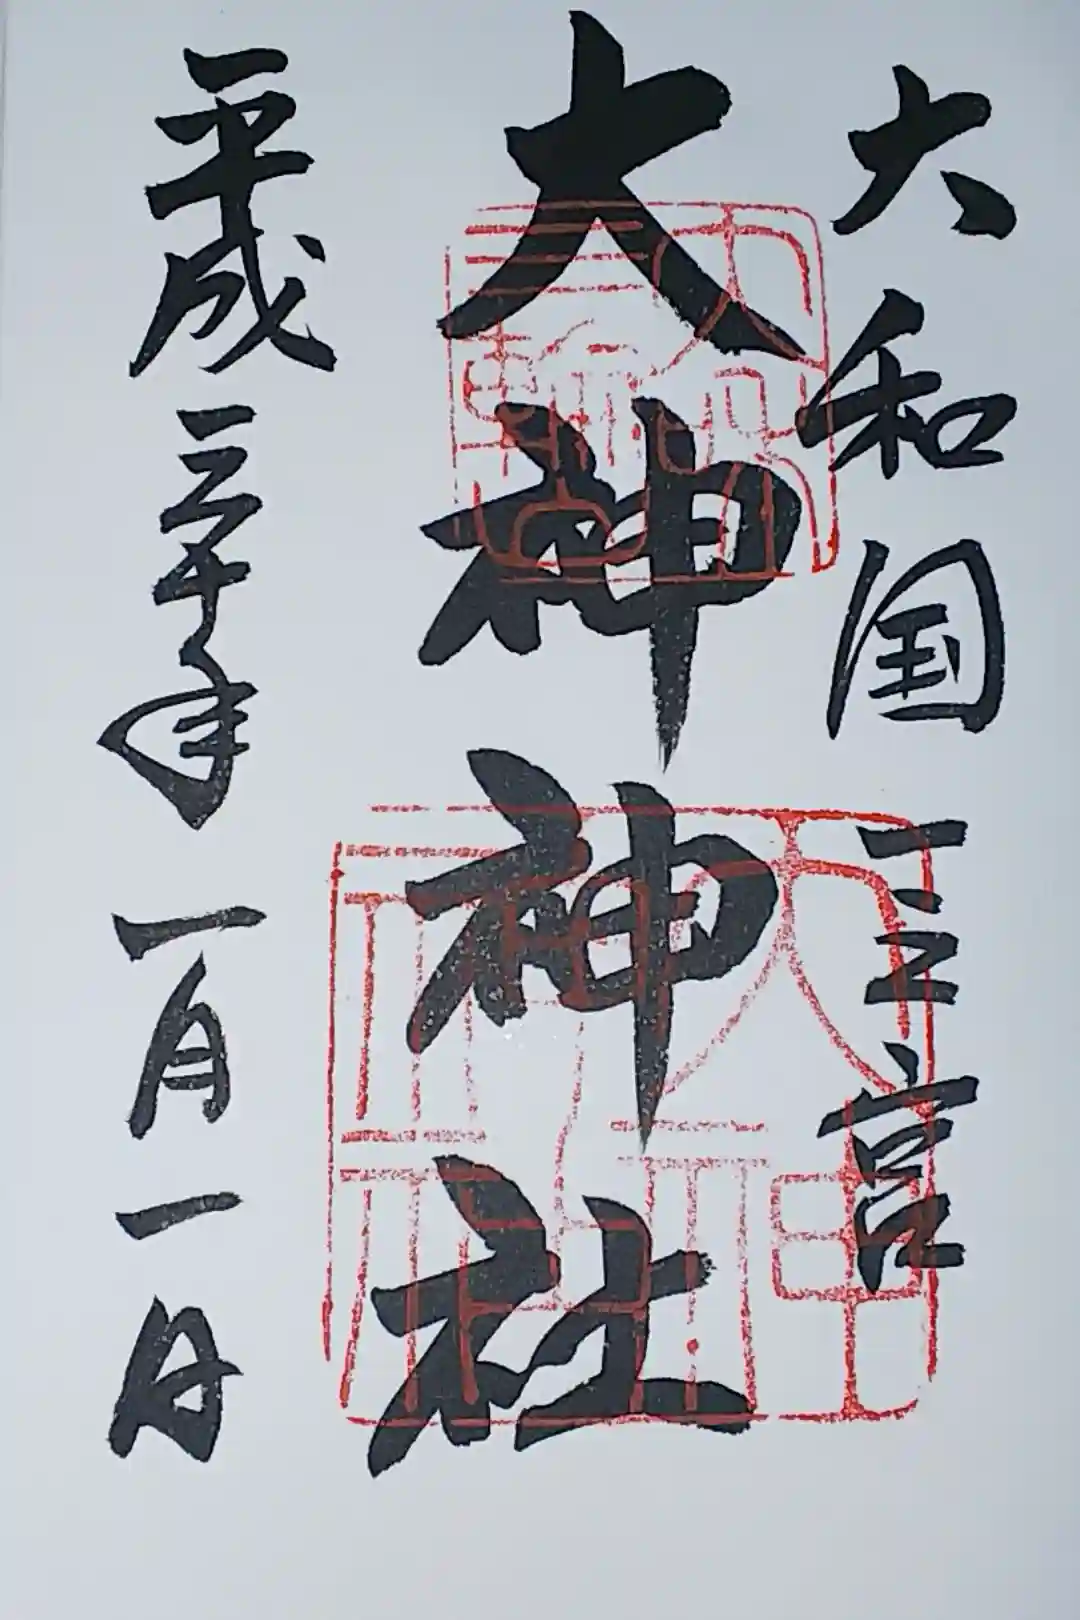 大和国一之宮
大神神社
平成三十年一月一日
大神
神社